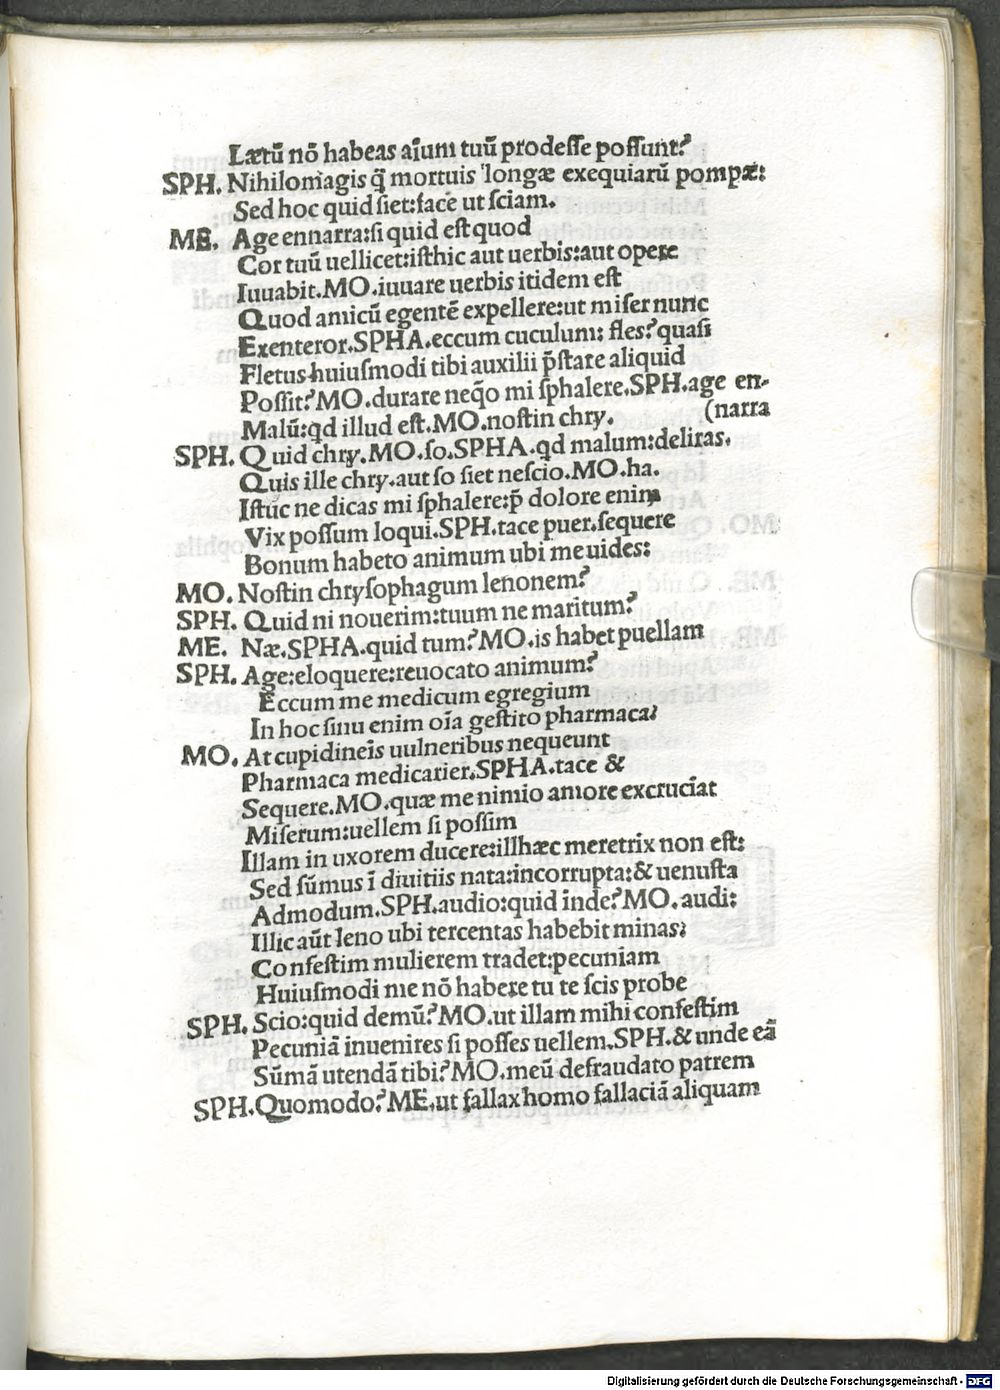 Lætū nō habeas aīum tuū prodeſſe poſſunt?
SPH. Nihilomagis q̄ mortuis longæ exequiarū pompæ:
Sed hoc quid ſiet:face ut ſciam.
ME. Age ennarra:ſi quid eſt quod
Cor tuū uellicet:iſthic aut uerbis:aut opere
Iuuabit.MO.iuuare uerbis itidem eſt
Quod amicū egentē expellere:ut miſer nunc
Exenteror.SPHA.eccum cuculum: fles?quaſi
Fletus huiuſmodi tibi auxilii p̄ſtare aliquid
Poſſit?MO.durare neq̄o mi ſphalere.SPH.age en-
Malū:qd illud eſt.MO.noſtin chry. (narra
SPH. Quid chry.MO.ſo.SPHA.qd malum:deliras.
Quis ille chry.aut ſo ſiet neſcio.MO.ha.
Iſtuc ne dicas mi ſphalere:p̄ dolore enim
Vix poſſum loqui.SPH.tace puer.ſequere
Bonum habeto animum ubi me uides:
MO. Noſtin chryſophagum lenonem?
SPH. Quid ni nouerim:tuum ne maritum?
ME. Næ.SPHA.quid tum?MO.is habet puellam
SPH. Age:eloquere:reuocato animum?
Eccum me medicum egregium
In hoc ſinu enim oīa geſtito pharmaca?
MO. At cupidineis uulneribus nequeunt
Pharmaca medicarier.SPHA.tace &
Sequere.MO.quæ me nimio amore excruciat
Miſerum:uellem ſi poſſim
Illam in uxorem ducere:illhæc meretrix non eſt:
Sed ſūmus ī diuitiis nata:incorrupta:& uenuſta
Admodum.SPH.audio:quid inde?MO.audi:
Illic aūt leno ubi tercentas habebit minas:
Confeſtim mulierem tradet:pecuniam
Huiuſmodi me nō habere tu te ſcis probe
SPH. Scio:quid demū?MO.ut illam mihi confeſtim
Pecuniā inuenires ſi poſſes uellem.SPH.& unde eā
Sūmā utendā tibi?MO.meū defraudato patrem
SPH.Quomodo?ME.ut fallax homo fallaciā aliquam
Digitalisierung gefördert durch die Deutsche Forschungsgemeinschaft - DFG